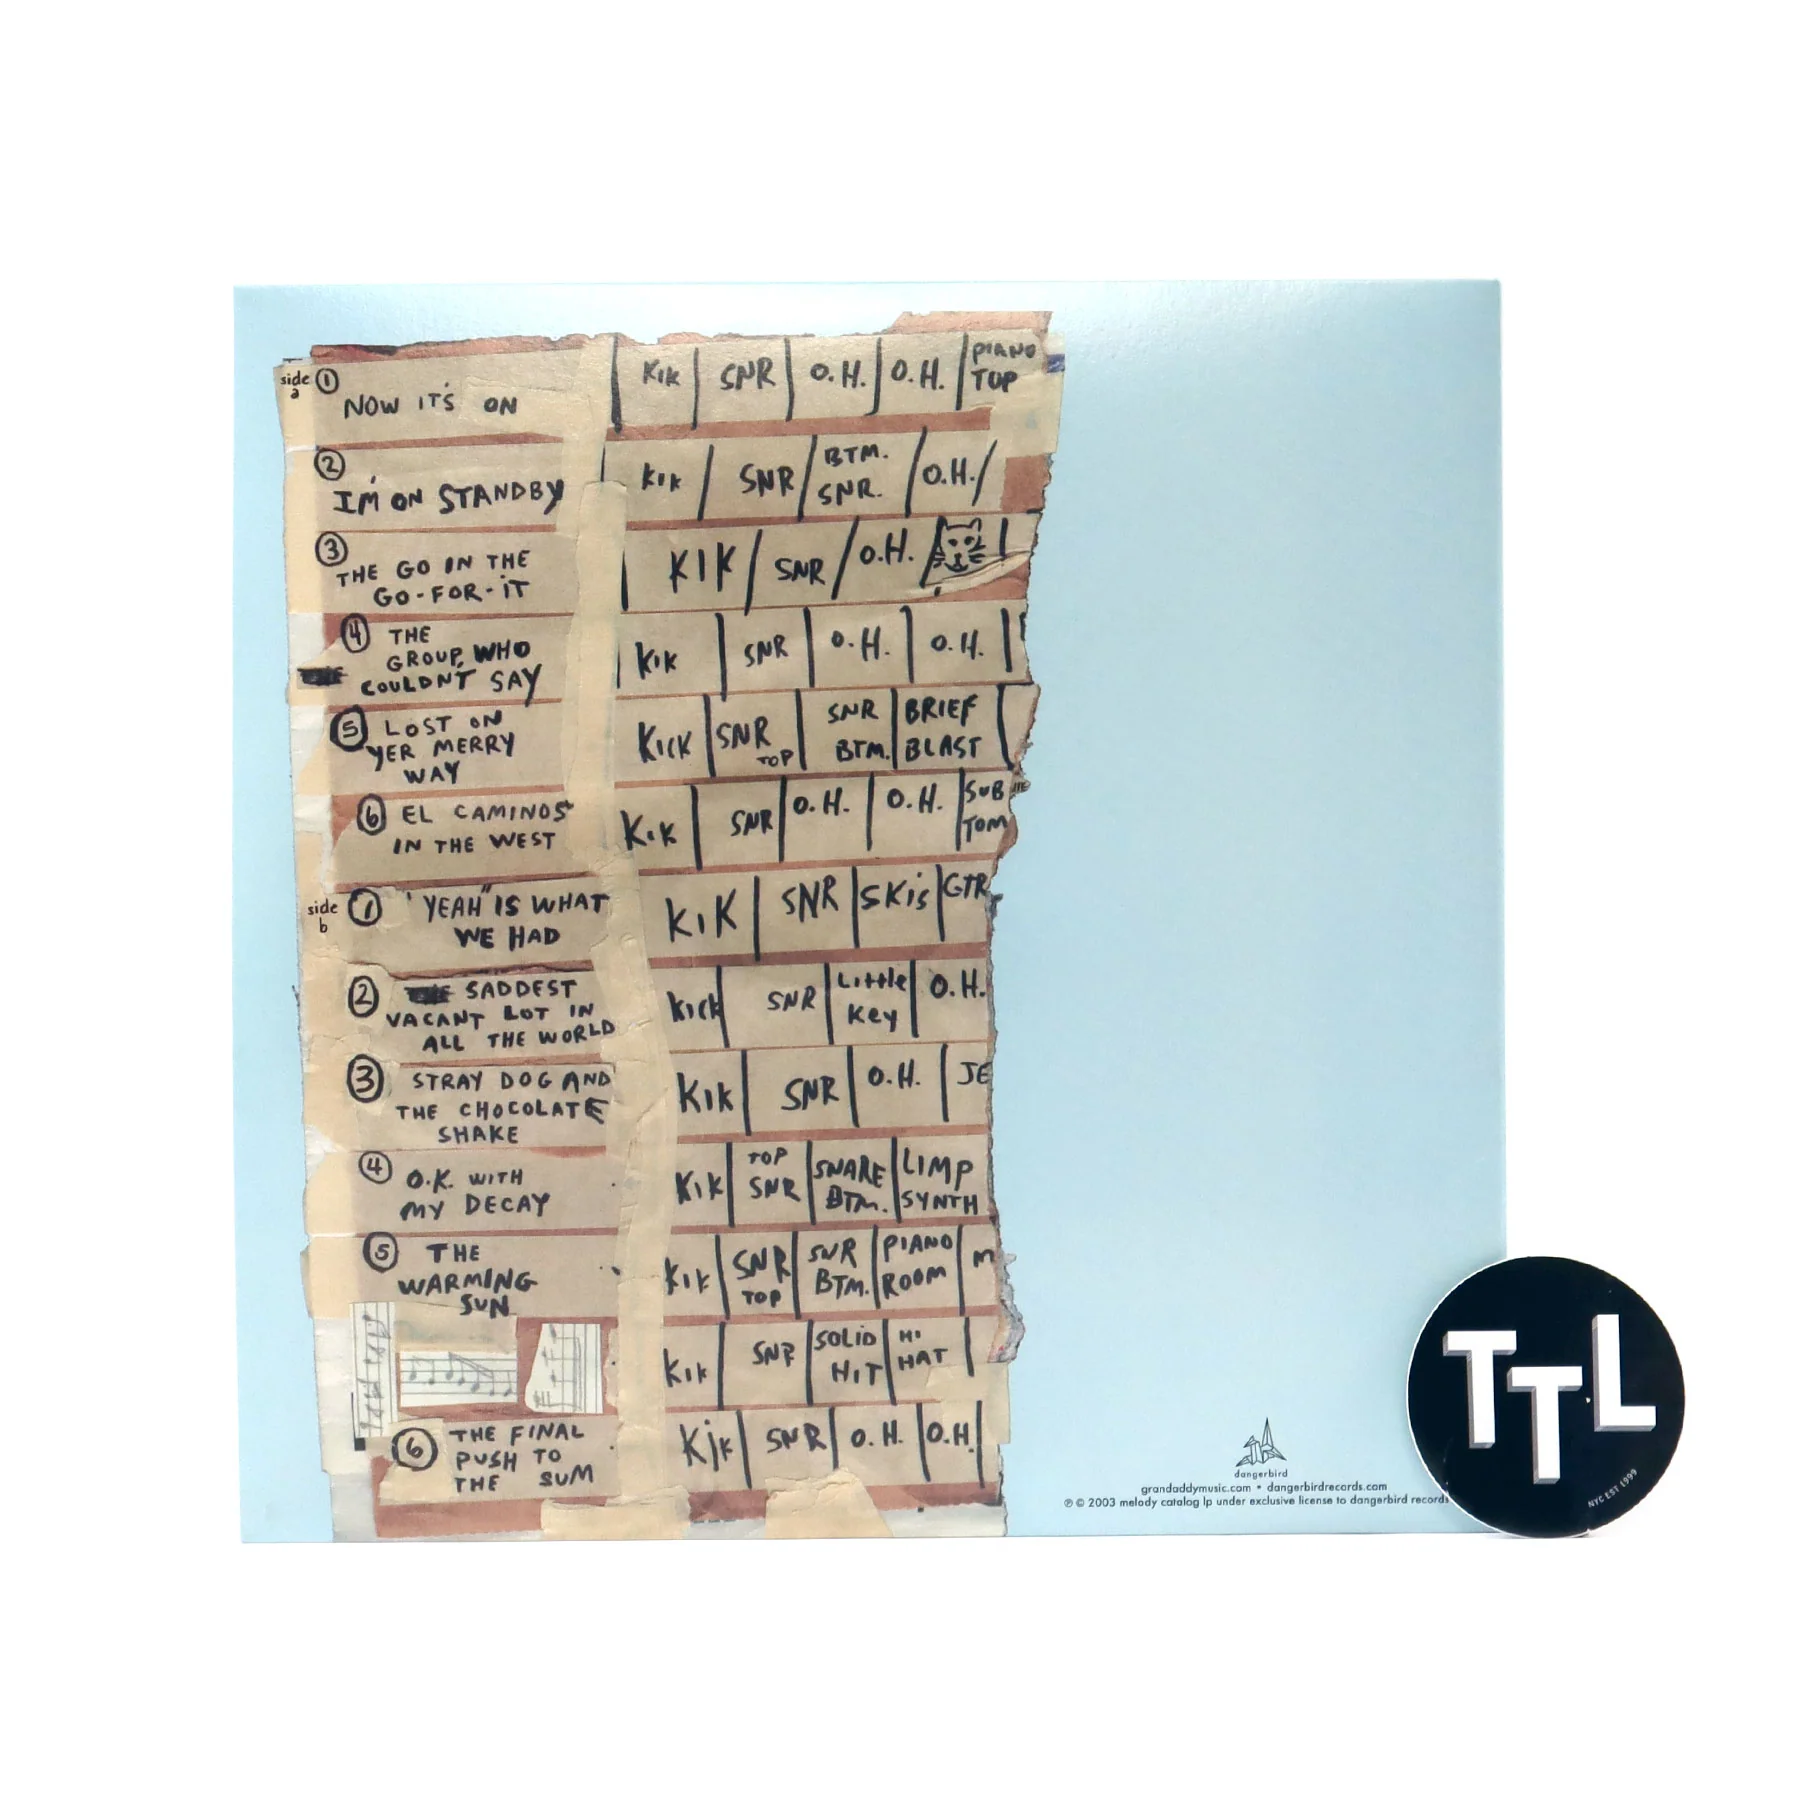 side a
① NOW IT'S ON
KIK SNR O.H. O.H. PIANO TOP
② I'M ON STANDBY
KIK SNR BTM. SNR. O.H.
③ THE GO IN THE
GO-FOR-IT
KIK SNR O.H.
④ THE
GROUP WHO
COULDN'T SAY
KIK SNR O.H. O.H.
⑤ LOST ON
YER MERRY
WAY
KICK SNR TOP SNR BTM. BRIEF BLAST
⑥ EL CAMINOS
IN THE WEST
KIK SNR O.H. O.H. SUB TOM
side b
① "YEAH" IS WHAT
WE HAD
KIK SNR SKIS GTR
② SADDEST
VACANT LOT IN
ALL THE WORLD
KICK SNR LITTLE KEY O.H.
③ STRAY DOG AND
THE CHOCOLATE
SHAKE
KIK SNR O.H. JE
④ O.K. WITH
MY DECAY
KIK TOP SNR SNARE BTM. LIMP SYNTH
⑤ THE
WARMING
SUN
KIK SNR TOP SNR BTM. PIANO ROOM M
KIK SNR SOLID HIT HI HAT
⑥ THE FINAL
PUSH TO
THE SUM
KIK SNR O.H. O.H.
dangerbird
grandaddymusic.com • dangerbirdrecords.com
℗ © 2003 melody catalog lp under exclusive license to dangerbird records
TTL
NYC EST 1999